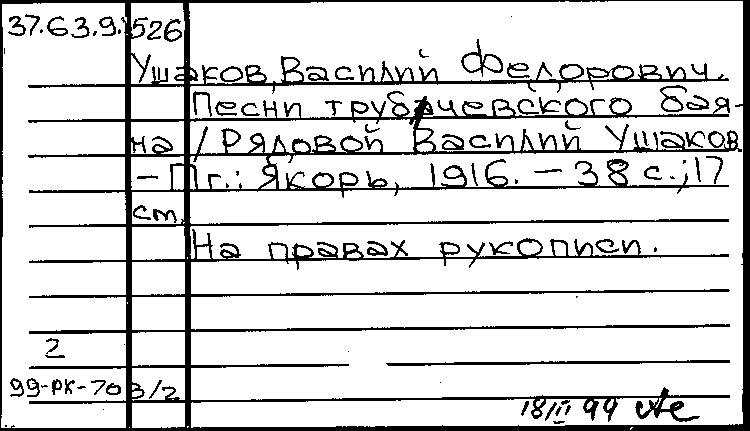 37.63.9.526
Ушаков, Василий Федорович.
Песни трубчевского бая-
на / Рядовой Василий Ушаков
– Пг.: Якорь, 1916. – 38 с.; 17
см.
На правах рукописи.
2
99-РК-70 3/2
18/III 99